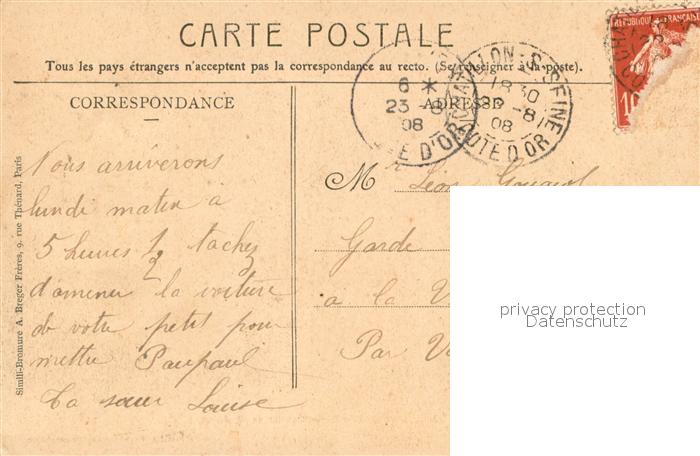 CARTE POSTALE
Tous les pays étrangers n'acceptent pas la correspondance au recto. (Se renseigner à la poste).
CORRESPONDANCE
ADRESSE
RÉPUBLIQUE FRANÇAISE
10
6 *
23 -8
08
E D'OR
CHATILLON-S-SEINE
18 30
-8
08
COTE D'OR
Simili-Bromure A. Breger Frères, 9, rue Thénard, Paris
Nous arriverons
lundi matin à
5 heures 1/2 tachez
d'amener la voiture
de votre petit pour
mettre Paupaul
Ta sœur Louise
M Léon
Garde
a la V
Par V
privacy protection
Datenschutz